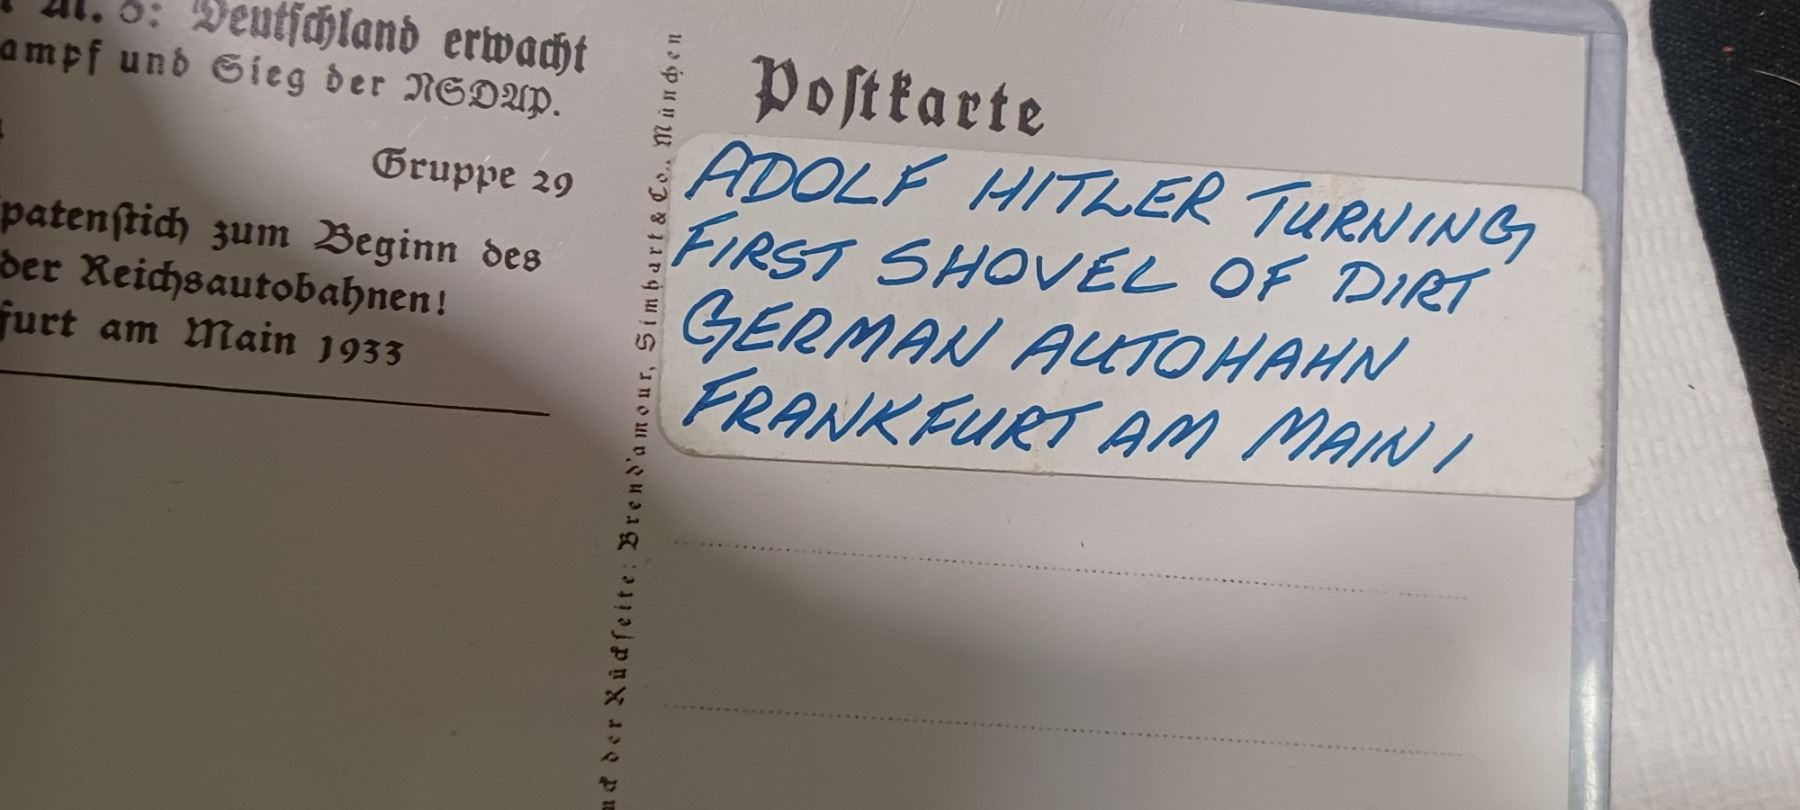 Nr. 8: Deutſchland erwacht
ampf und Sieg der NSDAP.
Gruppe 29
patenſtich zum Beginn des
der Reichsautobahnen!
furt am Main 1933
nd der Rückſeite: Brend'amour, Simhart & Co., München
Poſtkarte
ADOLF HITLER TURNING
FIRST SHOVEL OF DIRT
GERMAN AUTOHAHN
FRANKFURT AM MAIN 1